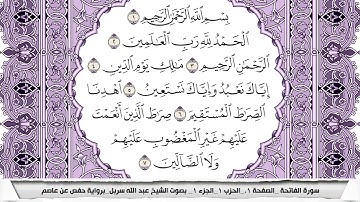 بِسْمِ اللَّهِ الرَّحْمَٰنِ الرَّحِيمِ ١
الْحَمْدُ لِلَّهِ رَبِّ الْعَالَمِينَ ٢
الرَّحْمَٰنِ الرَّحِيمِ ٣ مَالِكِ يَوْمِ الدِّينِ ٤
إِيَّاكَ نَعْبُدُ وَإِيَّاكَ نَسْتَعِينُ ٥ اهْدِنَا
الصِّرَاطَ الْمُسْتَقِيمَ ٦ صِرَاطَ الَّذِينَ أَنْعَمْتَ
عَلَيْهِمْ غَيْرِ الْمَغْضُوبِ عَلَيْهِمْ
وَلَا الضَّالِّينَ ٧
سورة الفاتحة _ الصفحة ١ _ الحزب ١ _ الجزء ١ _ بصوت الشيخ عبد الله سربل _ برواية حفص عن عاصم